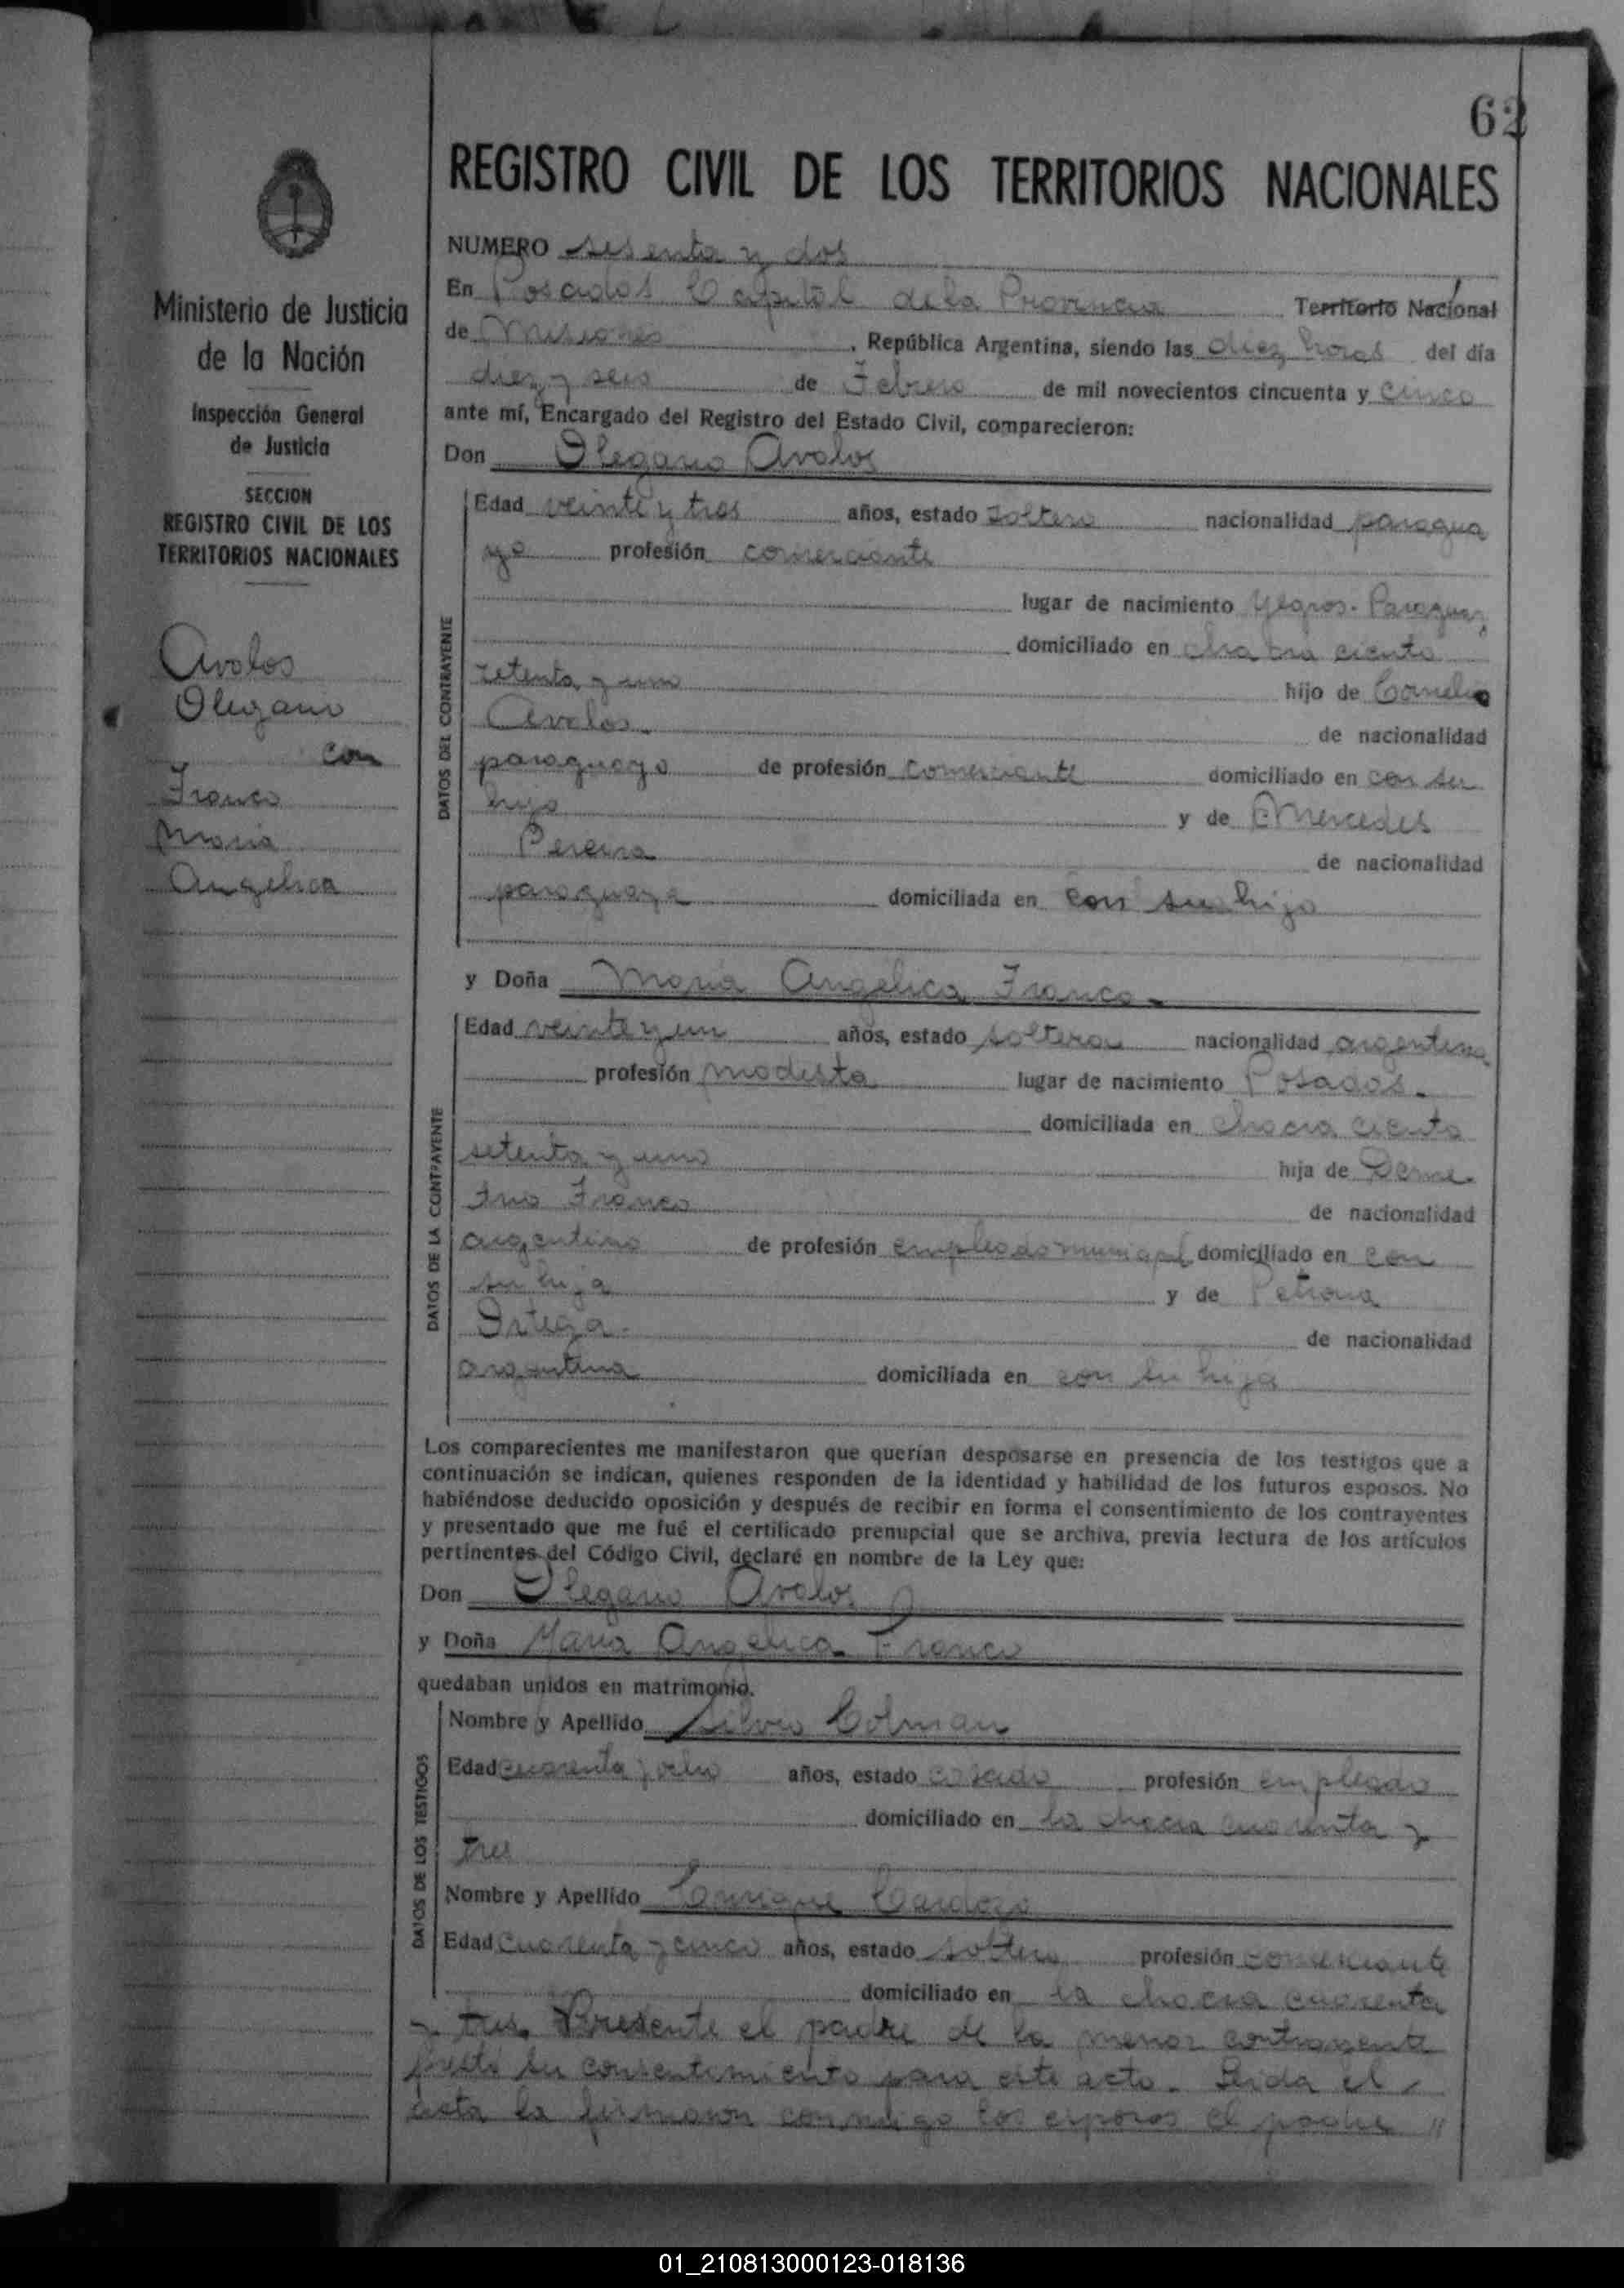 62
REGISTRO CIVIL DE LOS TERRITORIOS NACIONALES
Ministerio de Justicia
de la Nación
Inspección General
de Justicia
SECCION
REGISTRO CIVIL DE LOS
TERRITORIOS NACIONALES
Avalos
Olegario
con
Franco
Maria
Angelica
NUMERO sesenta y dos
En Posadas Capital de la Provincia Territorio Nacional
de Misiones, República Argentina, siendo las diez horas del día
diez y seis de Febrero de mil novecientos cincuenta y cinco
ante mí, Encargado del Registro del Estado Civil, comparecieron:
Don Olegario Avalos
DATOS DEL CONTRAYENTE
Edad veinte y tres años, estado soltero nacionalidad paragua
yo profesión comerciante
lugar de nacimiento Yegros. Paraguay
domiciliado en chacra ciento
setenta y uno hijo de Cornelio
Avalos. de nacionalidad
paraguayo de profesión comerciante domiciliado en con su
hijo y de Mercedes
Pereira de nacionalidad
paraguaya domiciliada en con su hijo
y Doña Maria Angelica Franco.
DATOS DE LA CONTRAYENTE
Edad veinte y un años, estado soltera nacionalidad argentina
profesión modista lugar de nacimiento Posadas.
domiciliada en chacra ciento
setenta y uno hija de Deme-
trio Franco de nacionalidad
argentino de profesión empleado domiciliado en con
su hija y de Petrona
Ortega. de nacionalidad
argentina domiciliada en con su hija
Los comparecientes me manifestaron que querían desposarse en presencia de los testigos que a
continuación se indican, quienes responden de la identidad y habilidad de los futuros esposos. No
habiéndose deducido oposición y después de recibir en forma el consentimiento de los contrayentes
y presentado que me fué el certificado prenupcial que se archiva, previa lectura de los artículos
pertinentes del Código Civil, declaré en nombre de la Ley que:
Don Olegario Avalos
y Doña Maria Angelica Franco
quedaban unidos en matrimonio.
DATOS DE LOS TESTIGOS
Nombre y Apellido Silvio Colman
Edad cuarenta y ocho años, estado casado profesión empleado
domiciliado en la chacra cuarenta y
tres
Nombre y Apellido Enrique Cardozo
Edad cuarenta y cinco años, estado soltero profesión comerciante
domiciliado en la chacra cuarenta
y tres. Presente el padre de la menor contrayente
prestó su consentimiento para este acto. Leida el
acta la firmaron conmigo los esposos el padre "
01_210813000123-018136